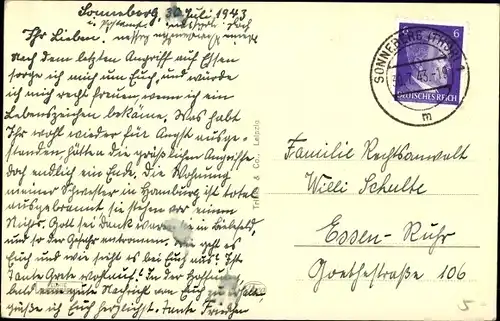 Sonneberg, 30. Juli 1943
Ihr Lieben.
Nach dem letzten Angriff auf Essen
sorge ich mich um Euch, und würde
ich mich recht freuen, wenn ich ein
Lebenszeichen bekäme. Was habt
Ihr wohl wieder für Angst ausge-
standen hätten die gräßlichen Angriffe
doch endlich ein Ende. Die Wohnung
meiner Schwester in Hamburg ist total
ausgebrannt sie stehen vor einem
Nichts. Gott sei Dank in Bielefeld,
und so der Gefahr entronnen. Wie geht es
Euch und wie sieht es bei Euch aus? Ist
Tante Grete wohlauf? In der Hoffnung,
bald eine gute Nachricht von Euch zu erhalten,
grüße ich Euch herzlichst. Tante Friedchen
Trinks & Co., Leipzig
SONNEBERG (THÜR) 1
30.7.43
m
6
DEUTSCHES REICH
Familie Rechtsanwalt
Willi Schulte
Essen-Ruhr
Goethestraße 106
5